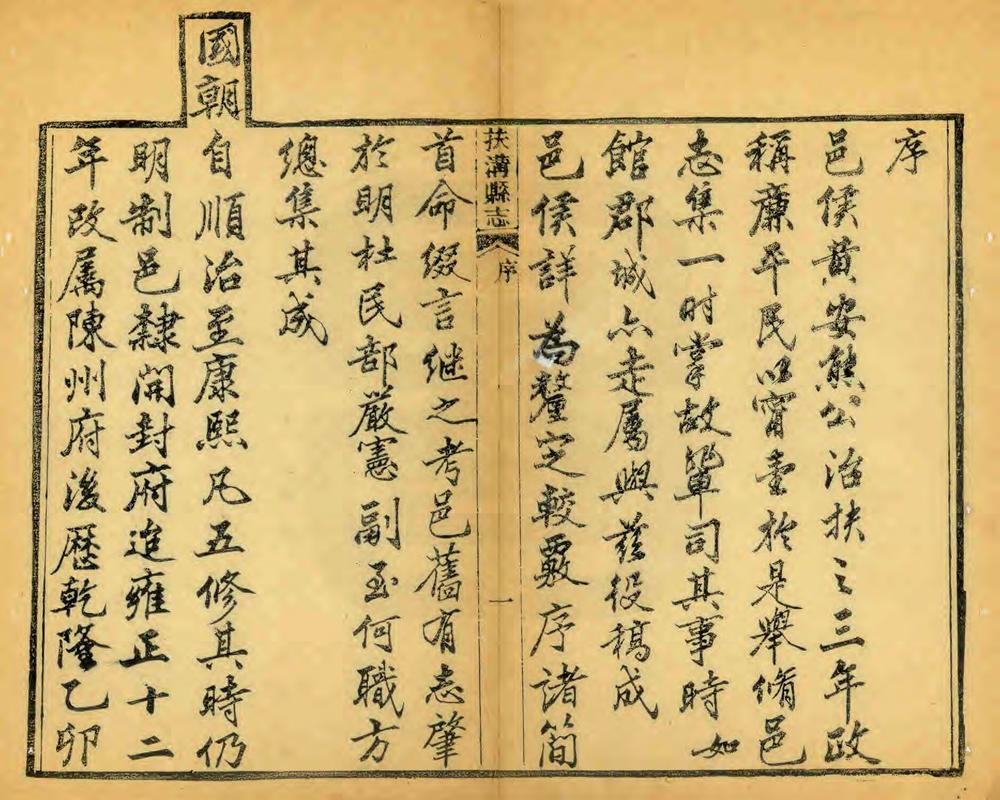 序
邑侯黃安熊公治扶之三年政
稱廉平民以甯壹於是舉脩邑
志集一时掌故軰司其事時如
館郡城亦走屬與茲役稿成
邑侯詳為釐定較覈序諸簡
扶溝縣志
序
一
首命綴言継之考邑舊有志肇
於明杜民部嚴憲副至何職方
總集其成
國朝
自順治至康熙凡五修其時仍
明制邑隸開封府迨雍正十二
年改属陳州府後歷乾隆乙卯